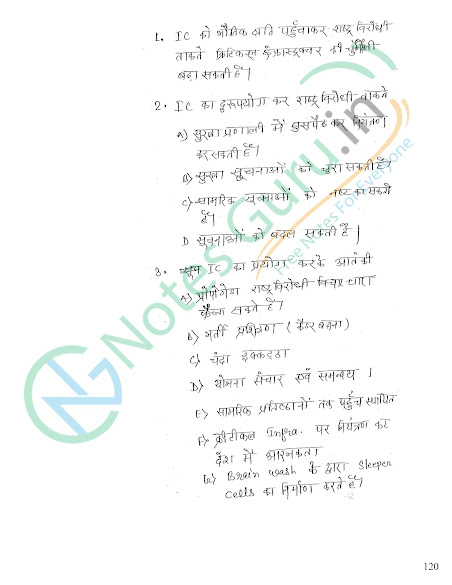 1. IC को भौतिक क्षति पहुँचाकर राष्ट्र विरोधी
ताकते क्रिटिकल इंफ्रास्ट्रक्चर की चुनौती
बढ़ा सकती हैं।
2. IC का दुरूपयोग कर राष्ट्र विरोधी ताकते
A) सुरक्षा प्रणाली में घुसपैठ कर नियंत्रण
कर सकती हैं।
B) सुरक्षा सूचनाओं को चुरा सकती हैं।
C) सामरिक सूचनाओं को नष्ट कर सकती
हैं।
D सूचनाओं को बदल सकती हैं।
3. IC का प्रयोग करके आतंकी
A) प्रोपेगेंडा राष्ट्र विरोधी विचार धारा
फैला सकते हैं।
B) भर्ती प्रशिक्षण (कैडर बनाना)
C) चंदा इकट्ठा
D) योजना संचार एवं समन्वय ।
E) सामरिक प्रतिष्ठानों तक पहुँच स्थापित
F) क्रीटीकल Infra. पर नियंत्रण कर
देश में अराजकता।
G) Brain wash के द्वारा Sleeper
Cells का निर्माण करते हैं।
NotesGuru.in
Free Notes For Everyone
120